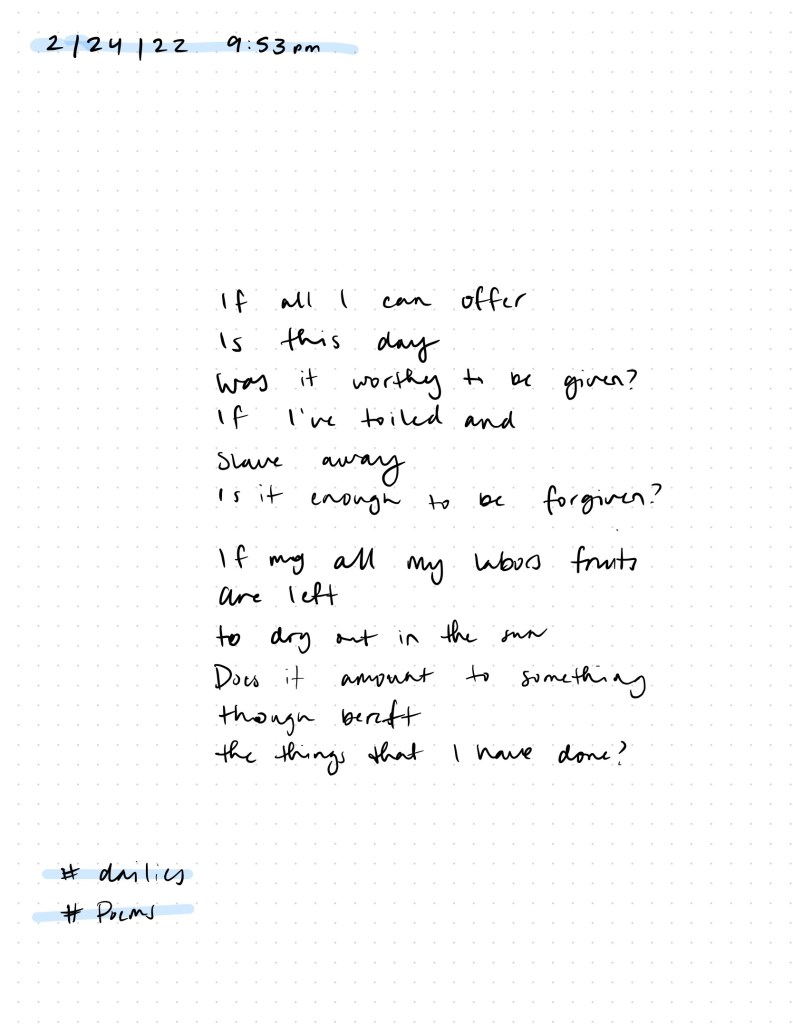 2/24/22 9:53pm
If all I can offer
Is this day
Was it worthy to be given?
If I've toiled and
Slave away
Is it enough to be forgiven?
If my all my labors fruits
are left
to dry out in the sun
Does it amount to something
though bereft
the things that I have done?
# dailies
# Poems